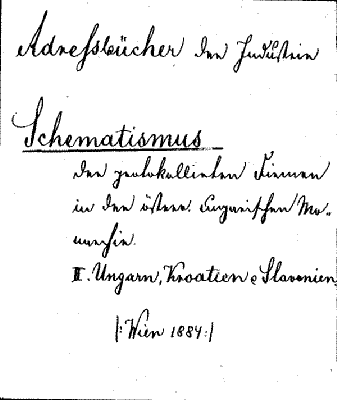 Adreßbücher der Industrie
Schematismus
der protokollirten Firmen
in der österr. Ungarischen Mo-
narchie.
II. Ungarn, Kroatien & Slavonien
/: Wien 1884 :/